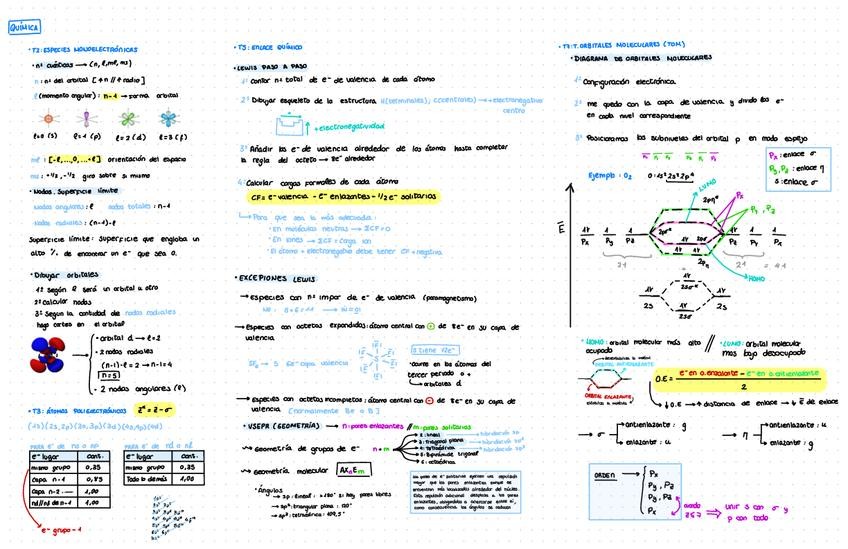 QUÍMICA
• T2: ESPECIES MONOELECTRÓNICAS
• nº cuánticos → (n, ℓ, mℓ, ms)
n: nº del orbital [↑n // ↑ radio]
ℓ (momento angular): n-1 → forma orbital
ℓ=0 (s) ℓ=1 (p) ℓ=2 (d) ℓ=3 (f)
mℓ: [-ℓ,...,0,...+ℓ] orientación del espacio
ms: +1/2, -1/2 giro sobre si mismo
• Nodos. Superficie límite
Nodos angulares: ℓ nodos totales: n-1
Nodos radiales: (n-1)-ℓ
Superficie límite: superficie que engloba un
alto % de encontrar un e⁻ que sea 0.
• Dibujar orbitales
1º según ℓ será un orbital a otro
2º calcular nodos
3º Según la cantidad de nodos radiales
hago cortes en el orbital
• orbital d → ℓ=2
• 2 nodos radiales
(n-1)-ℓ = 2 → n-1=4
n=5
- 2 nodos angulares (ℓ)
• T3: ÁTOMOS POLIELECTRÓNICOS Z*= Z-σ
(1s)(2s,2p)(3s,3p)(3d)(4s,4p)(4d)
PARA e⁻ de ns o np
e⁻ lugar const.
mismo grupo 0,35
capa n-1 0,85
capa n-2 ... 1,00
nd//nf de n-1 1,00
PARA e⁻ de nd o nf
e⁻ lugar const.
mismo grupo 0,35
Todo lo demás 1,00
e⁻ grupo-1
• T5: ENLACE QUÍMICO
• LEWIS PASO A PASO
1º contar nº total de e⁻ de valencia de cada átomo
2º Dibujar esqueleto de la estructura H(terminales); C(centrales) → + electronegativo
centro
+ electronegatividad
3º Añadir los e⁻ de valencia alrededor de los átomos hasta completar
la regla del octeto → 8e⁻ alrededor
4. Calcular cargas formales de cada átomo
CF = e⁻ valencia - e⁻ enlazantes - 1/2 e⁻ solitarios
Para que sea la más adecuada:
• En moléculas neutras → ΣCF=0
• En iones → ΣCF = carga ion
• El átomo + electronegativo debe tener CF + negativa.
• EXCEPIONES LEWIS
→ especies con nº impar de e⁻ de valencia (paramagnetismo)
→ Especies con octetos expandidos: átomo central con + de 8e⁻ en su capa de
valencia
• ocurre en los átomos del
tercer periodo o +
orbitales d
→ especies con octetos incompletos: átomo central con - de 8e⁻ en su capa de
valencia (normalmente Be o B)
• VSEPR (GEOMETRÍA) → n: pares enlazantes // m: pares solitarios
→ Geometría de grupos de e⁻ n+m
2: lineal
3: trigonal plana
4: tetraédrica
5: bipirámide trigonal
6: octaédrica
→ Geometría molecular AXnEm
• Ángulos
→ sp: lineal: <180° si hay pares libres
→ sp²: triangular plana: 120°
→ sp³: tetraédrica: 109,5°
T7: T. ORBITALES MOLECULARES (TOM)
• DIAGRAMA DE ORBITALES MOLECULARES
1º Configuración electrónica.
2º me quedo con la capa de valencia y divido los e⁻
en cada nivel correspondiente
3º Posicionamos los subniveles del orbital p en modo espejo
Px: enlace σ
Py, Pz: enlace π
s: enlace σ
Ejemplo: O2 O: 1s² 2s² 2p⁴
E
LUMO
Px
Py, Pz
Px Py Pz
Pz Py Px
HOMO
2s
2s
• HOMO: orbital molecular más alto
ocupado
// • LUMO: orbital molecular
mas bajo desocupado
ORBITAL ANTIENLAZANTE
ORBITAL ENLAZANTE
O.E = e⁻ en o.enlazante - e⁻ en o.antienlazante
2
↓O.E → ↑ distancia de enlace → ↓ E de enlace
→ σ antienlazante: g
enlazante: u
→ π antienlazante: u
enlazante: g
ORDEN →
Px
Py, Pz
Py, Pz
Px
cuando
Z≤7
unir s con σ y
p con todo